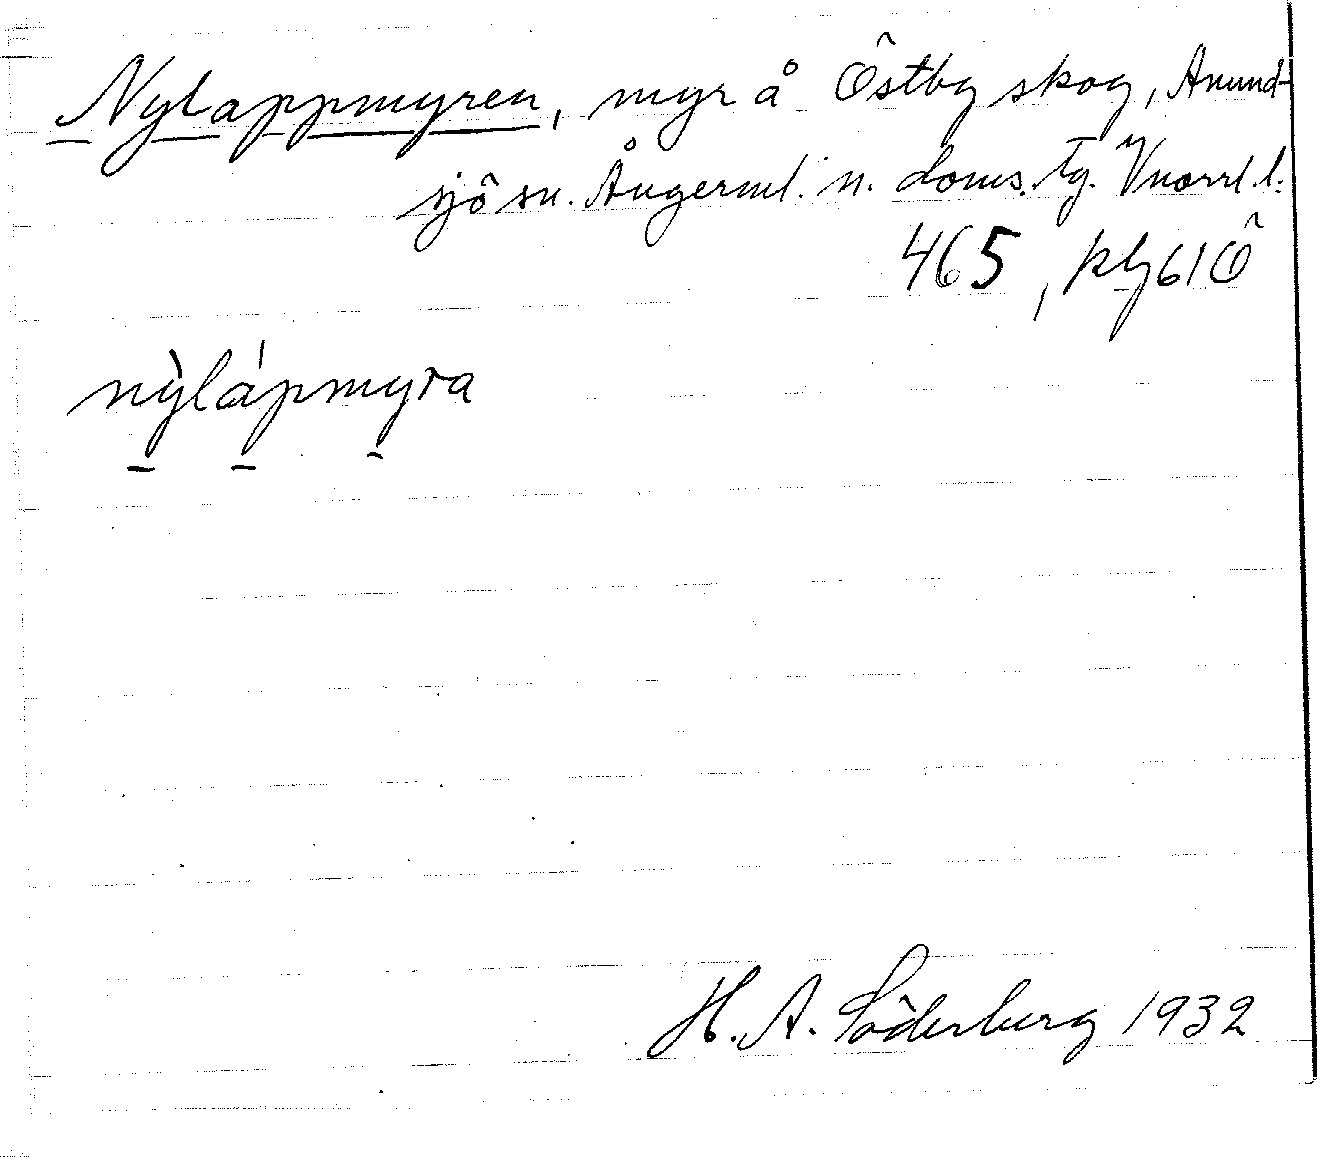 Nylappmyren, myr å Östby skog, Anund-
sjö sn. Ångerml. n. doms. tg. Vnorrl. l.
465, plg 61 Ö
nỳlápmyra
H. A. Söderberg 1932